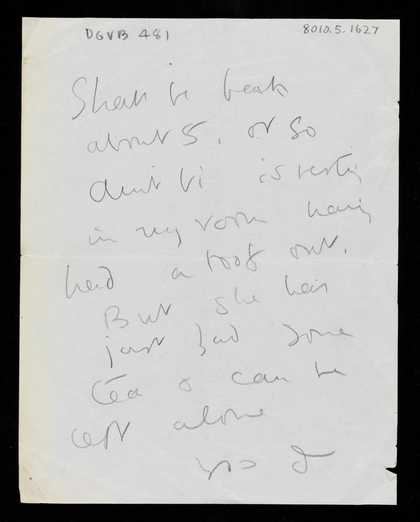 DGVB 481
8010.5.1627
Shall be back
about 5. or so
Aunt Vi is resting
in my room having
had a tooth out.
But she has
just had some
tea & can be
left alone
yrs D